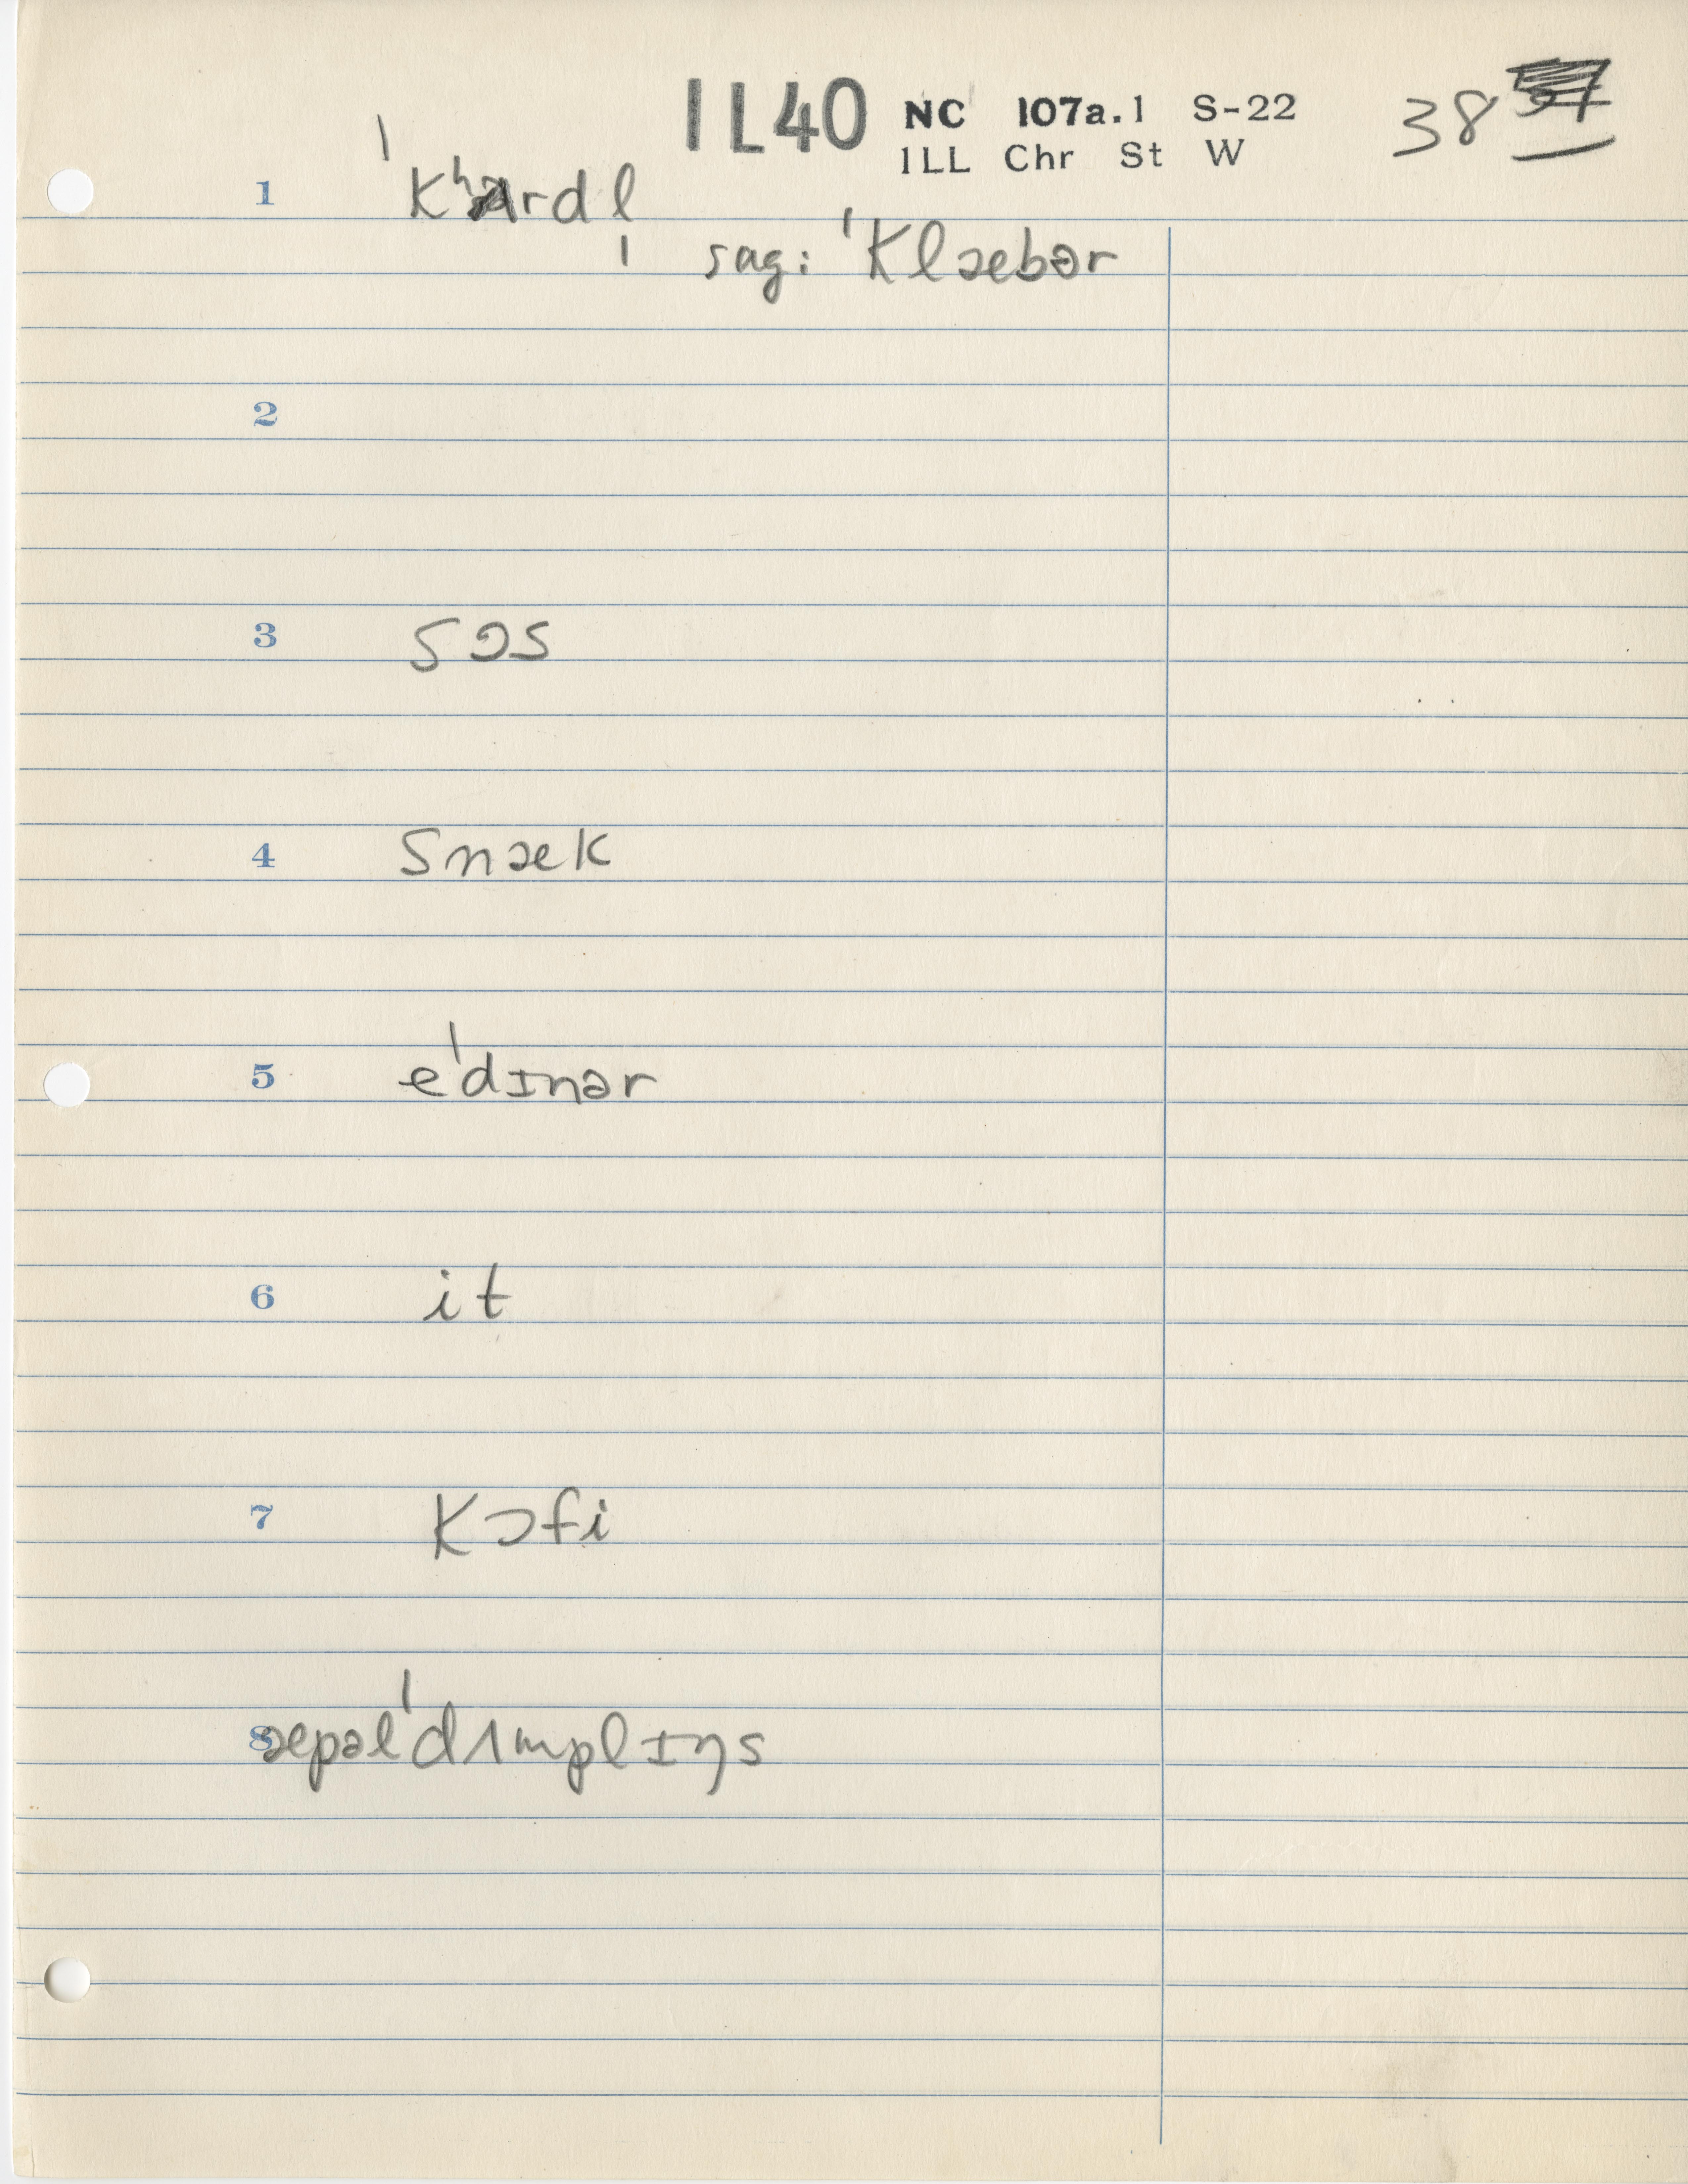 1L40 NC 107a.1 S-22 38
1LL Chr St W
1 ˈkʰʌrdl̩
sug: ˈklæbər
2
3 sɔs
4 snæk
5 eˈdɪnər
6 it
7 kɔfi
8 æpəlˈdʌmplɪŋs